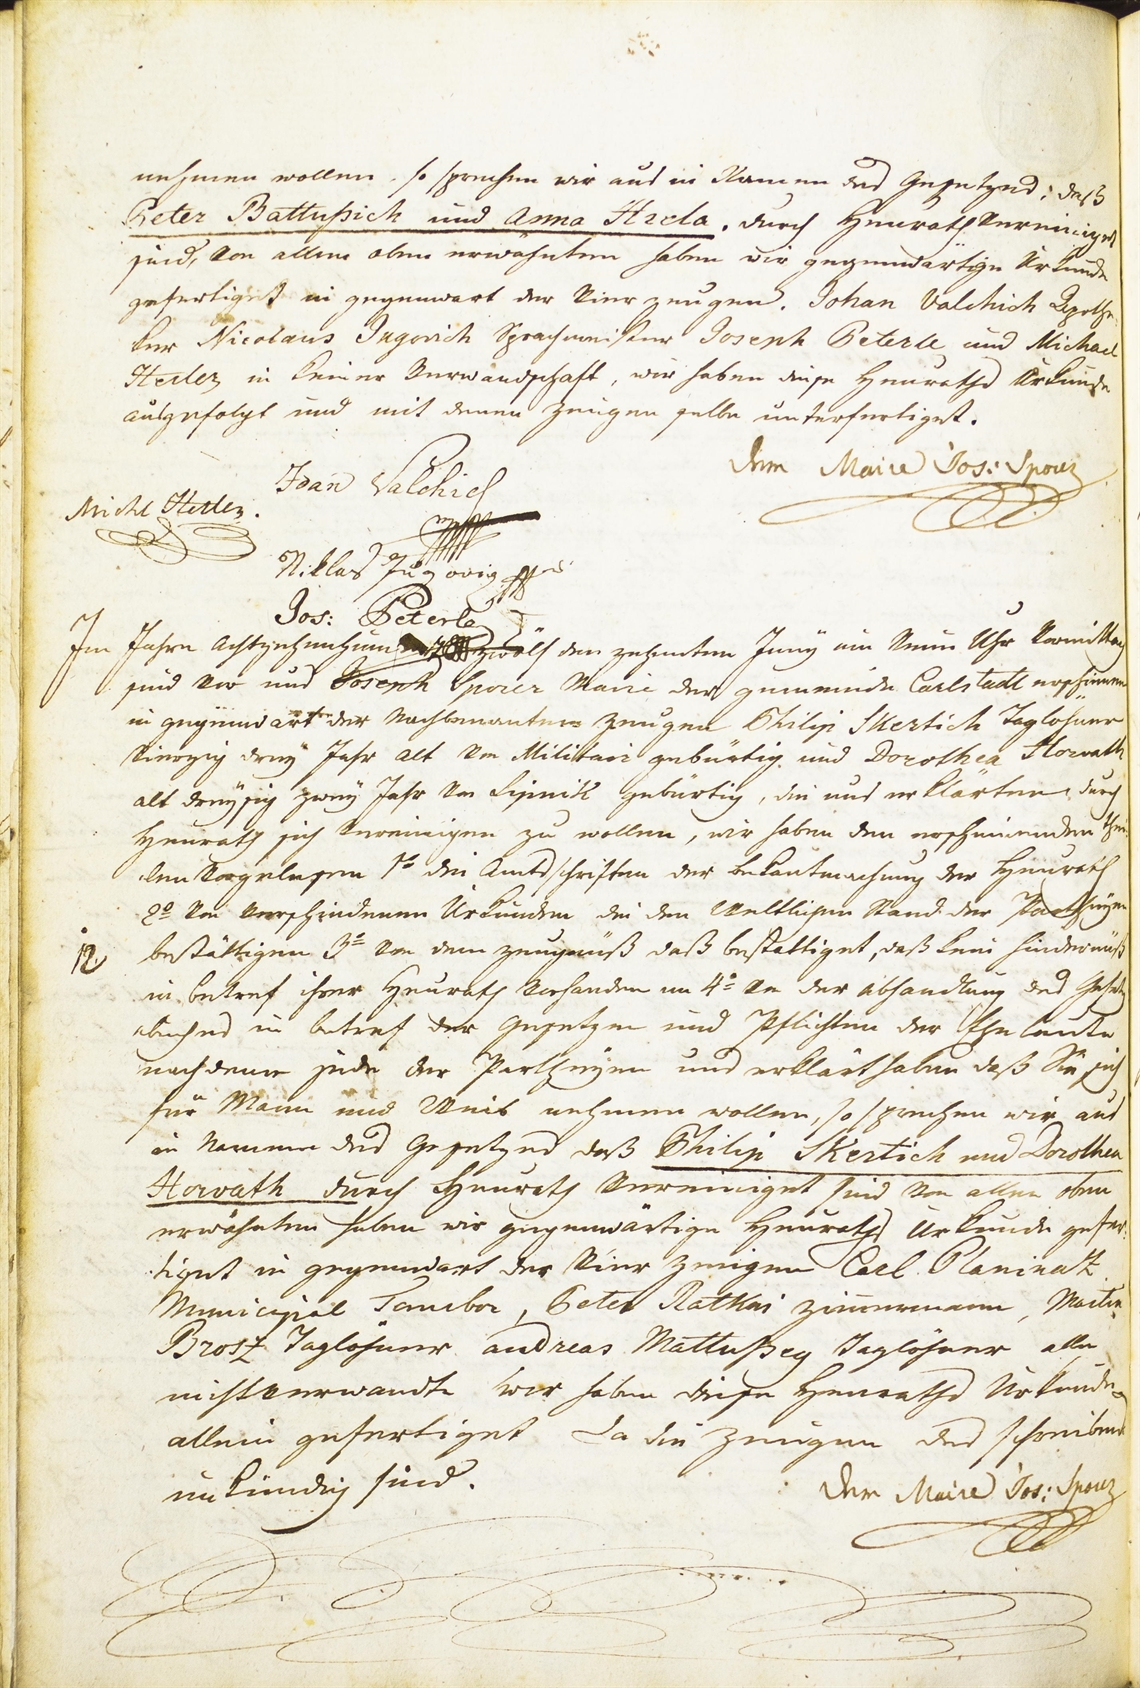 nehmen wollen. so sprechen wir aus in Namen des Gesetzes: daß
Peter Battußich und Anna Hrela. durch Heurath Vereiniget
sind, Von allem oben erwähnten haben wir gegenwärtige Urkunde
gefertiget in gegenwart der Vier zeugen. Johan Valchich Apothe-
ker Nicolaus Jugovich Sprachmeister Joseph Peterle und Michael
Hetler in keiner Verwandschaft, wir haben diese Heuraths Urkunde
ausgefolgt und mit denen zeugen selbe unterfertiget.
Der Maire Jos: Sporer
Ivan Valchich
Michl Hetler.
Niklas Jugovig
Jos: Peterle
Im Jahre Achtzehenhundert zwölf den zehenten Juny um Neun Uhr Vormittag
sind Vor uns Joseph Sporer Maire der gemeinde Carlstadt erschienen
in gegenwart der Nachbenanten zeugen Philip Skertich Taglöhner
Vierzig drey Jahr alt Von Militari gebürtig und Dorothea Horvath
alt dreyßig zwey Jahr Von Lipnik gebürtig, die uns erklärten durch
Heurath sich Vereinigen zu wollen, wir haben den erscheinenden thei-
len Vorgelesen 1º die Amtsschriften der bekantmachung der Heurath
2º Die Verschiedenen Urkunden die den Weltlichen Stand der Partheyen
bestättigen 3º Von dem zeugnüß daß bestättiget, daß kein hindernüß
12
in betref ihrer Heurath Vorhanden un 4º Von der abhandlung des Gesetz
buches in betref der Gesetzen und Pflichten der Eheleute
nachdeme jede der Partheyen uns erklärt haben daß Sie sich
für Mann und Weib nehmen wollen, so sprechen wir aus
in Namen des Gesetzes daß Philip Skertich und Dorothea
Horvath durch Heurath Vereiniget sind Von allen oben
erwähnten haben wir gegenwärtige Heuraths Urkunde gefer-
tiget in gegenwart der Vier zeugen Carl Planinatz
Municipal Tambor, Peter Rathai zimmermann, Martin
Brosz Taglöhner andreas Mattußeg Taglöhner alle
nicht Verwandte wir haben diese Heuraths Urkunde
allein gefertiget Da die zeugen des schreibens
unkündig sind.
Der Maire Jos: Sporer